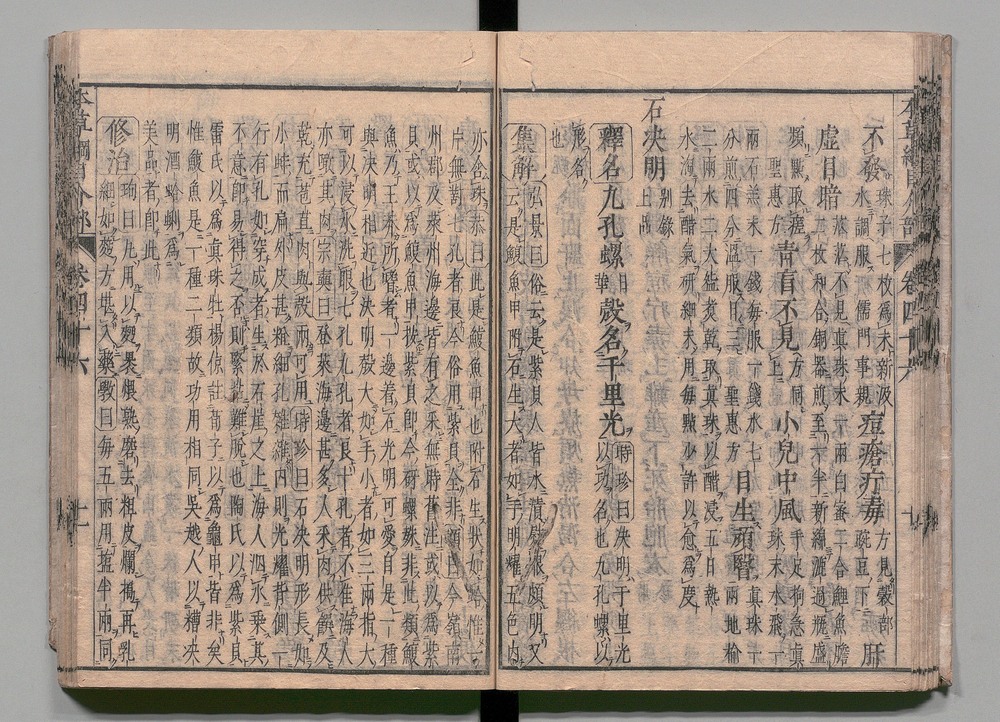 不發 珠子七枚為末新汲水調服儒門事親 痘瘡疔毒 方見穀部豌豆下 肝
虛目暗 茫茫不見真珠末一兩白蜜二合鯉魚膽二枚和合銅器煎至一半新綿濾過瓶盛
頻點取瘥聖惠方 青盲不見 方同上 小兒中風 手足拘急真珠末水飛一
兩石羔末一錢每服一錢水七分煎四分溫服日三聖惠方 目生頑瞖 真珠一兩地榆
二兩水二大盌煮乾取真珠以醋浸五日熱水淘去醋氣研細末用每點少許以愈為度
石決明 別錄上品
釋名 九孔螺 日華 殼名千里光 時珍曰決明千里光以功名也九孔螺以形名也
集解 弘景曰俗云是紫貝人皆水漬熨眼頗明又云是鰒魚甲附石生大者如手明耀五色內
亦含珠恭曰此是鰒魚甲也附石生狀如蛤惟一片無對七孔者良今俗用紫貝全非頌曰今嶺南
州郡及萊州海邊皆有之采無時舊注或以為紫貝或以為鰒魚甲按紫貝即今砑螺殊非此類鰒
魚乃王莽所嗜者一邊着石光明可愛自是一種與決明相近也決明殼大如手小者如三兩指大
可以浸水洗眼七孔九孔者良十孔者不佳海人亦噉其肉宗奭曰登萊海邊甚多人采肉供饌及
乾充苞苴肉與殼兩可用時珍曰石決明形長如小蚌而扁外皮甚粗細孔雜雜內則光耀背側一
行有孔如穿成者生於石崖之上海人泅水乘其不意即易得之否則緊粘難脫也陶氏以為紫貝
雷氏以為真珠牡楊倞註荀子以為龜甲皆非矣惟鰒魚是一種二類故功用相同吳越人以糟決
明酒蛤蜊為美品者即此
修治 珣曰凡用以麪裹煨熟磨去粗皮爛搗再乳細如麪方堪入藥斆曰每五兩用鹽半兩同